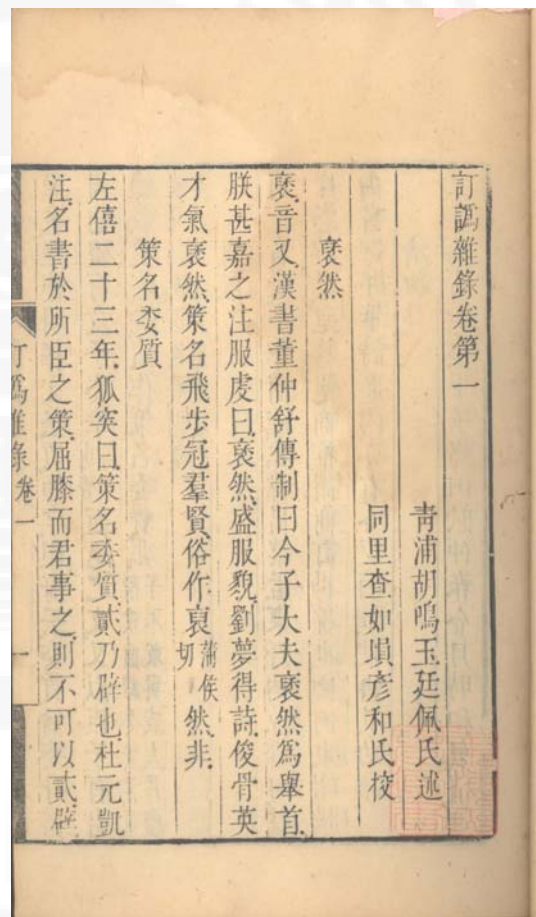 訂譌雜錄卷第一
青浦胡鳴玉廷佩氏述
同里查如塤彥和氏校
褎然
褎音又漢書董仲舒傳制曰今子大夫褎然爲舉首
朕甚嘉之注服虔曰褎然盛服貌劉夢得詩俊骨英
才氣褎然策名飛步冠羣賢俗作裒蒲侯切然非
策名委質
左僖二十三年狐突曰策名委質貳乃辟也杜元凱
注名書於所臣之策屈膝而君事之則不可以貳辟
訂譌雜錄卷一
一